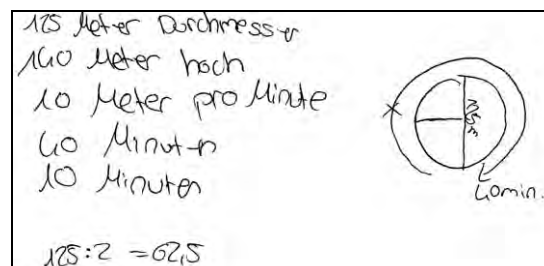 125 Meter Durchmesser
140 Meter hoch
10 Meter pro Minute
40 Minuten
10 Minuten
125m
40min.
125:2 = 62,5